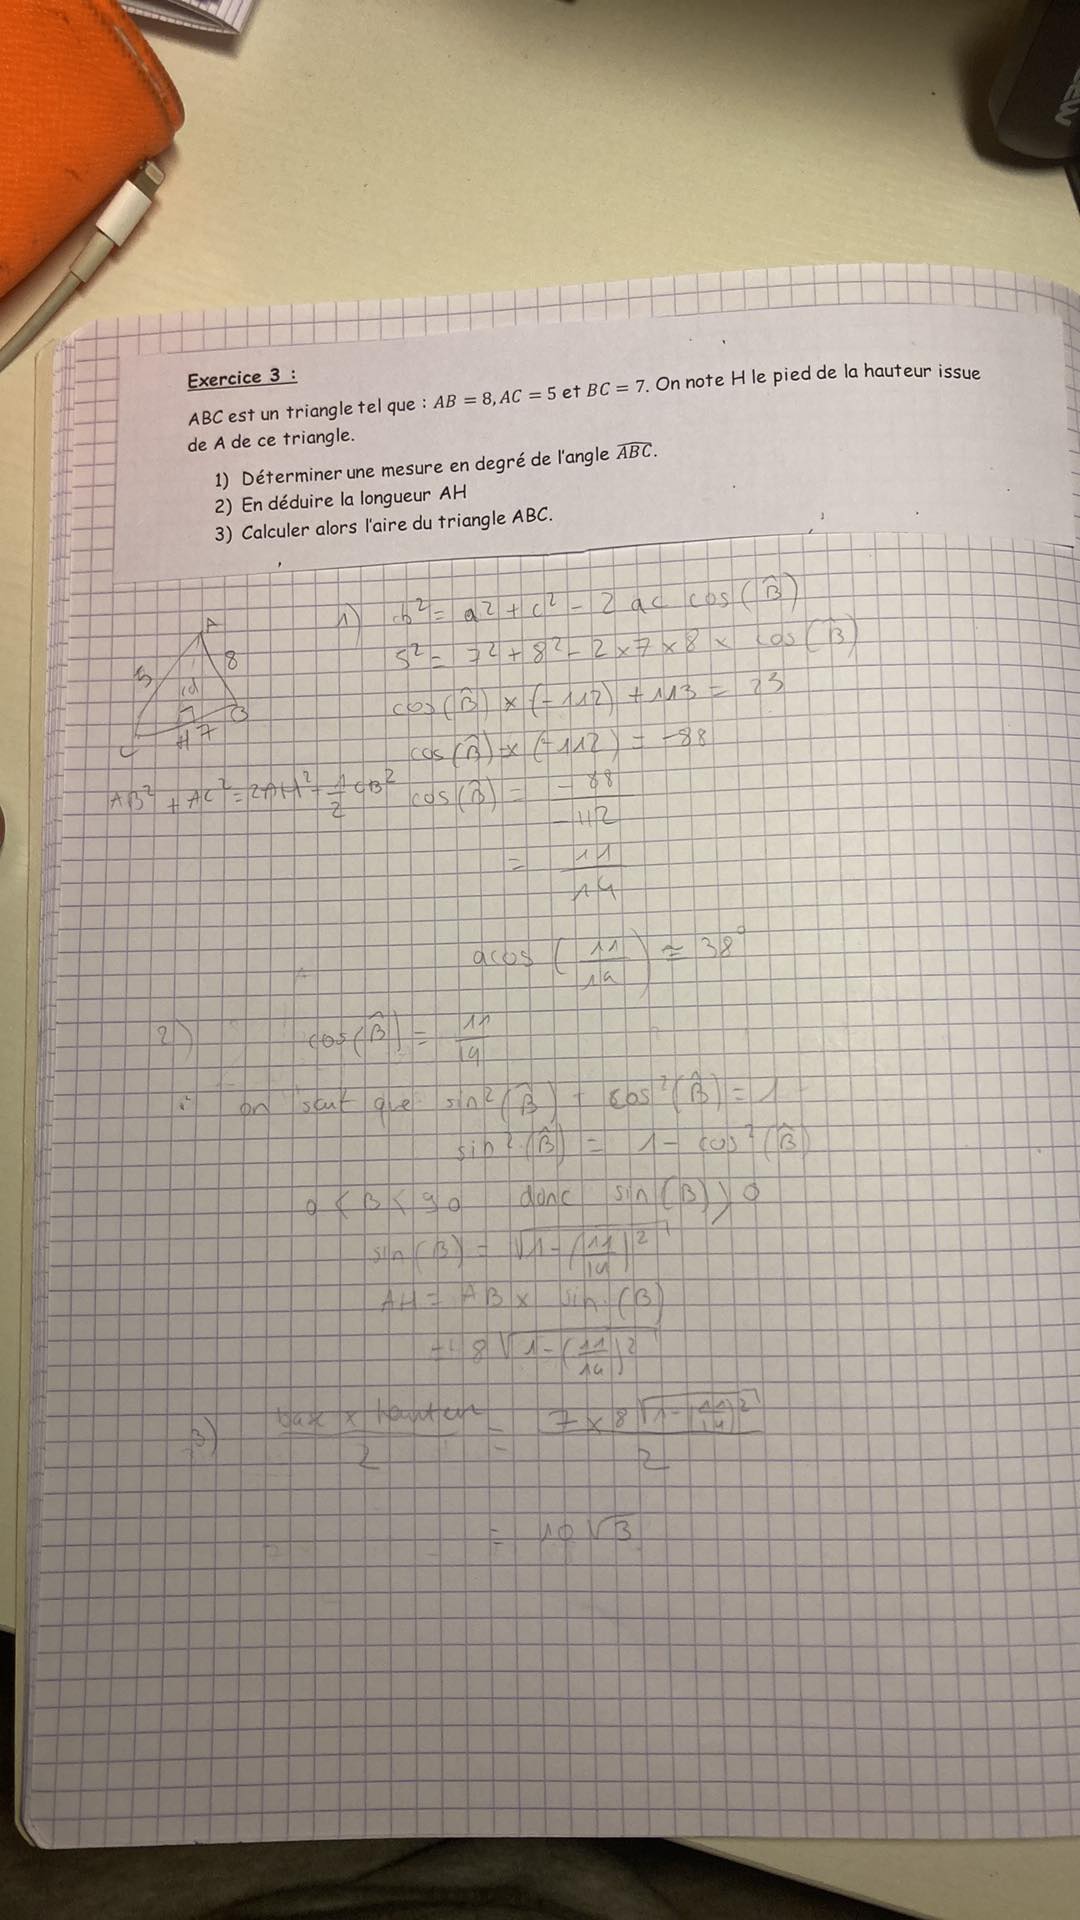 Exercice 3 :
ABC est un triangle tel que : AB = 8, AC = 5 et BC = 7. On note H le pied de la hauteur issue
de A de ce triangle.
1) Déterminer une mesure en degré de l'angle \widehat{ABC}.
2) En déduire la longueur AH
3) Calculer alors l'aire du triangle ABC.
A
5
8
d
C
H
7
B
1) b² = a² + c² - 2 ac cos(B̂)
5² = 7² + 8² - 2 × 7 × 8 × cos(B̂)
cos(B̂) × (-112) + 113 = 25
cos(B̂) × (-112) = -88
AB² + AC² = 2AH² + 1/2 CB²
cos(B̂) = -88/-112
= 11/14
acos (11/14) ≈ 38°
2) cos(B̂) = 11/14
on sait que sin²(B̂) + cos²(B̂) = 1
sin²(B̂) = 1 - cos²(B̂)
0 < B < 90 donc sin(B) > 0
sin(B) = √(1 - (11/14)²)
AH = AB × sin(B)
= 8 √(1 - (11/14)²)
3) base × hauteur / 2 = 7 × 8 √(1 - (11/14)²) / 2
= 10 √3